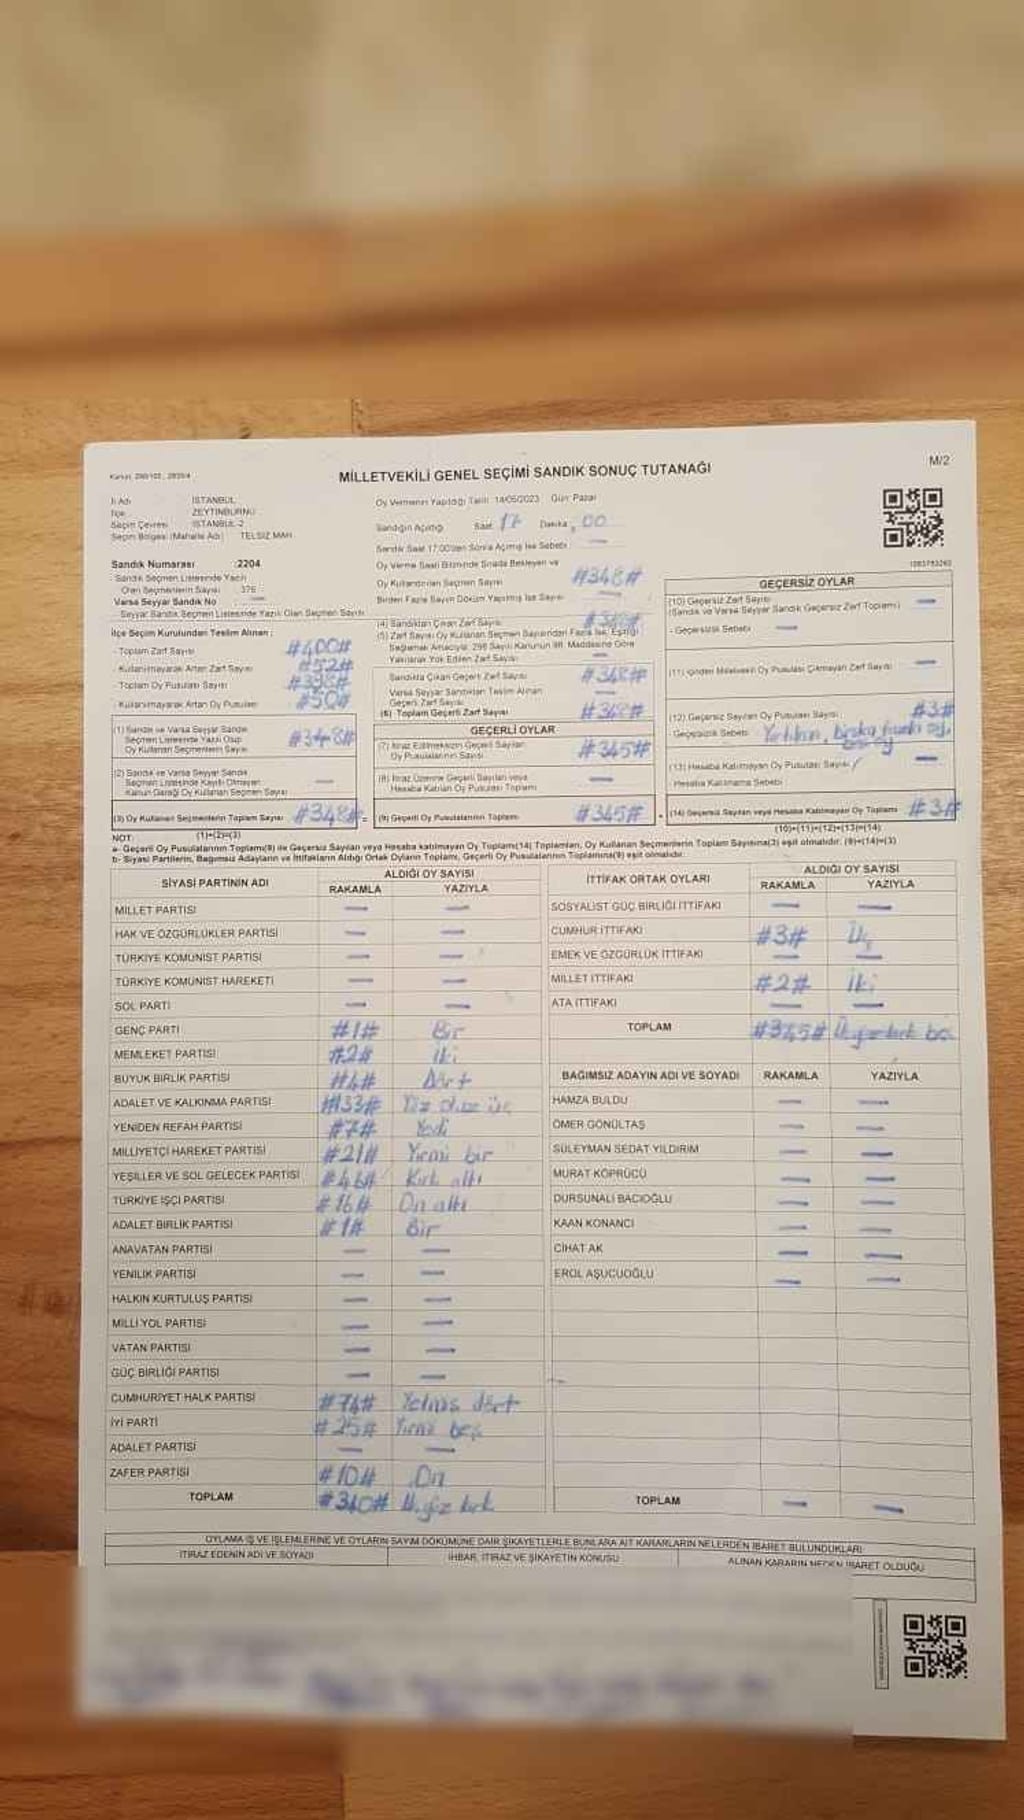 Kanun: 298/105 , 2839/4
MİLLETVEKİLİ GENEL SEÇİMİ SANDIK SONUÇ TUTANAĞI
M/2
İl Adı : İSTANBUL
İlçe : ZEYTİNBURNU
Seçim Çevresi : İSTANBUL-2
Seçim Bölgesi (Mahalle Adı) : TELSİZ MAH.
Sandık Numarası :2204
Sandık Seçmen Listesinde Yazılı
Olan Seçmenlerin Sayısı : 376
Varsa Seyyar Sandık No : —
Seyyar Sandık Seçmen Listesinde Yazılı Olan Seçmen Sayısı
İlçe Seçim Kurulundan Teslim Alınan ;
- Toplam Zarf Sayısı : #400#
- Kullanılmayarak Artan Zarf Sayısı : #52#
- Toplam Oy Pusulası Sayısı : #398#
- Kullanılmayarak Artan Oy Pusulası : #50#
(1) Sandık ve Varsa Seyyar Sandık Seçmen Listesinde Yazılı Olup Oy Kullanan Seçmenlerin Sayısı #348#
(2) Sandık ve Varsa Seyyar Sandık Seçmen Listesinde Kayıtlı Olmayan Kanun Gereği Oy Kullanan Seçmenlerin Sayısı —
(3) Oy Kullanan Seçmenlerin Toplam Sayısı #348# =
(1)+(2)=(3)
Oy Vermenin Yapıldığı Tarih: 14/05/2023 Gün: Pazar
Sandığın Açıldığı Saat: 17 Dakika: 00
Sandık Saat 17:00'den Sonra Açılmış İse Sebebi : —
Oy Verme Saati Bitiminde Sırada Bekleyen ve
Oy Kullandırılan Seçmen Sayısı #348#
Birden Fazla Sayım Döküm Yapılmış İse Sayısı : —
(4) Sandıktan Çıkan Zarf Sayısı #348#
(5) Zarf Sayısı Oy Kullanan Seçmen Sayısından Fazla İse, Eşitliği
Sağlamak Amacıyla; 298 Sayılı Kanunun 98. Maddesine Göre
Yakılarak Yok Edilen Zarf Sayısı —
Sandıkta Çıkan Geçerli Zarf Sayısı #348#
Varsa Seyyar Sandıktan Teslim Alınan
Geçerli Zarf Sayısı —
(6) Toplam Geçerli Zarf Sayısı #348#
GEÇERLİ OYLAR
(7) İtiraz Edilmeksizin Geçerli Sayılan Oy Pusulalarının Sayısı #345#
(8) İtiraz Üzerine Geçerli Sayılan veya Hesaba Katılan Oy Pusulası Toplamı —
(9) Geçerli Oy Pusulalarının Toplamı #345# +
1083783260
GEÇERSİZ OYLAR
(10) Geçersiz Zarf Sayısı
(Sandık ve Varsa Seyyar Sandık Geçersiz Zarf Toplamı) —
- Geçersizlik Sebebi : —
(11) İçinden Milletvekili Oy Pusulası Çıkmayan Zarf Sayısı —
(12) Geçersiz Sayılan Oy Pusulası Sayısı #3#
- Geçersizlik Sebebi
(13) Hesaba Katılmayan Oy Pusulası Sayısı —
Hesaba Katılmama Sebebi
(14) Geçersiz Sayılan veya Hesaba Katılmayan Oy Toplamı #3#
(10)+(11)+(12)+(13)=(14)
NOT:
a- Geçerli Oy Pusulalarının Toplamı(9) ile Geçersiz Sayılan veya Hesaba katılmayan Oy Toplamı(14) Toplamları, Oy Kullanan Seçmenlerin Toplam Sayısına(3) eşit olmalıdır. (9)+(14)=(3)
b- Siyasi Partilerin, Bağımsız Adayların ve İttifakların Aldığı Ortak Oyların Toplamı, Geçerli Oy Pusulalarının Toplamına(9) eşit olmalıdır.
SİYASİ PARTİNİN ADI ALDIĞI OY SAYISI
RAKAMLA YAZIYLA
MİLLET PARTİSİ — —
HAK VE ÖZGÜRLÜKLER PARTİSİ — —
TÜRKİYE KOMÜNİST PARTİSİ — —
TÜRKİYE KOMÜNİST HAREKETİ — —
SOL PARTİ — —
GENÇ PARTİ #1# Bir
MEMLEKET PARTİSİ #2# İki
BÜYÜK BİRLİK PARTİSİ #4# Dört
ADALET VE KALKINMA PARTİSİ #133# Yüz otuz üç
YENİDEN REFAH PARTİSİ #7# Yedi
MİLLİYETÇİ HAREKET PARTİSİ #21# Yirmi bir
YEŞİLLER VE SOL GELECEK PARTİSİ #46# Kırk altı
TÜRKİYE İŞÇİ PARTİSİ #16# On altı
ADALET BİRLİK PARTİSİ #1# Bir
ANAVATAN PARTİSİ — —
YENİLİK PARTİSİ — —
HALKIN KURTULUŞ PARTİSİ — —
MİLLİ YOL PARTİSİ — —
VATAN PARTİSİ — —
GÜÇ BİRLİĞİ PARTİSİ — —
CUMHURİYET HALK PARTİSİ #74# Yetmiş dört
İYİ PARTİ #25# Yirmi beş
ADALET PARTİSİ — —
ZAFER PARTİSİ #10# On
TOPLAM #340# Üçyüz kırk
İTTİFAK ORTAK OYLARI ALDIĞI OY SAYISI
RAKAMLA YAZIYLA
SOSYALİST GÜÇ BİRLİĞİ İTTİFAKI — —
CUMHUR İTTİFAKI #3# Üç
EMEK VE ÖZGÜRLÜK İTTİFAKI — —
MİLLET İTTİFAKI #2# İki
ATA İTTİFAKI — —
TOPLAM #345# Üçyüz kırk beş
BAĞIMSIZ ADAYIN ADI VE SOYADI RAKAMLA YAZIYLA
HAMZA BULDU — —
ÖMER GÖNÜLTAŞ — —
SÜLEYMAN SEDAT YILDIRIM — —
MURAT KÖPRÜCÜ — —
DURSUNALİ BACIOĞLU — —
KAAN KONANCI — —
CİHAT AK — —
EROL AŞUCUOĞLU — —
TOPLAM — —
OYLAMA İŞ VE İŞLEMLERİNE VE OYLARIN SAYIM DÖKÜMÜNE DAİR ŞİKAYETLERLE BUNLARA AİT KARARLARIN NELERDEN İBARET BULUNDUKLARI
İTİRAZ EDENİN ADI VE SOYADI İHBAR, İTİRAZ VE ŞİKAYETİN KONUSU ALINAN KARARIN NEDEN İBARET OLDUĞU